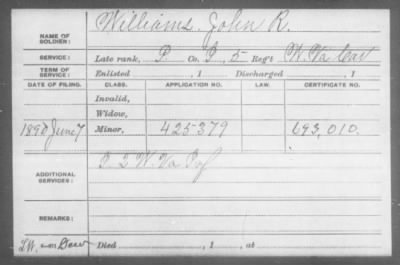 NAME OF SOLDIER: Williams, John R.
SERVICE: Late rank, P Co. I, 5 Reg't W. Va Cav
TERM OF SERVICE: Enlisted , 1 Discharged , 1
DATE OF FILING. CLASS. APPLICATION NO. LAW. CERTIFICATE NO.
Invalid,
Widow,
1890 June 7 Minor, 425379 693,010.
ADDITIONAL SERVICES: I 2 W. Va Inf
REMARKS:
Died , 1 , at